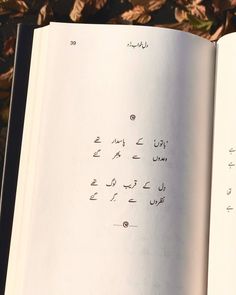 39
دل خواب زد
باتوں کے پاسدار تھے
وعدوں سے پھر گئے
دل کے قریب لوگ تھے
نظروں سے گر گئے